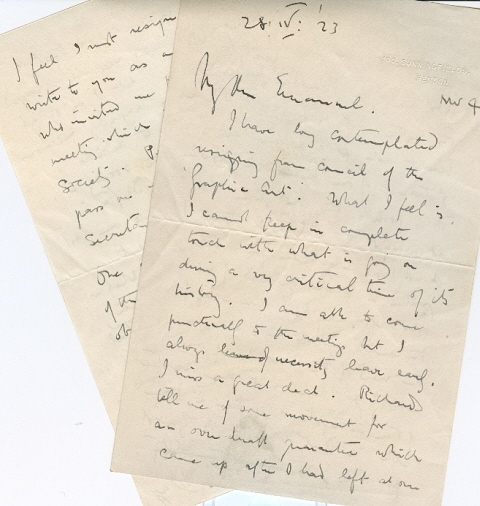 28. IV: '23
NW 4
My dear Emanuel.
I have long contemplated
resigning from council of the
Graphic Art: What I feel is
I cannot keep in complete
touch with what is going on
during a very critical time of its
history. I am able to come
punctually to the meetings but I
always of necessity leave early.
I miss a great deal. Richards
tell me of some movement for
an over draft guarantee which
came up after I had left at our
I feel I must resign
write to you as
who invited me
meeting which
society.
pass on
Secretary
One
of the